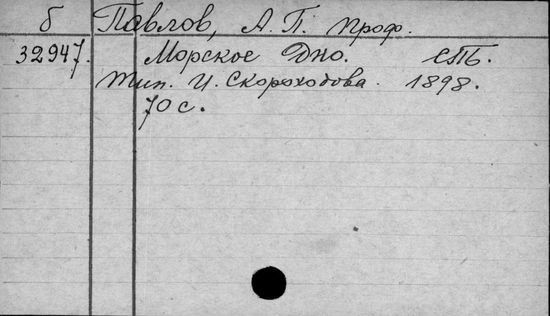 б Павлов, А. П. проф.
32947. Морское Дно. СПБ.
Тип. И. Скороходова. 1898.
70 с.